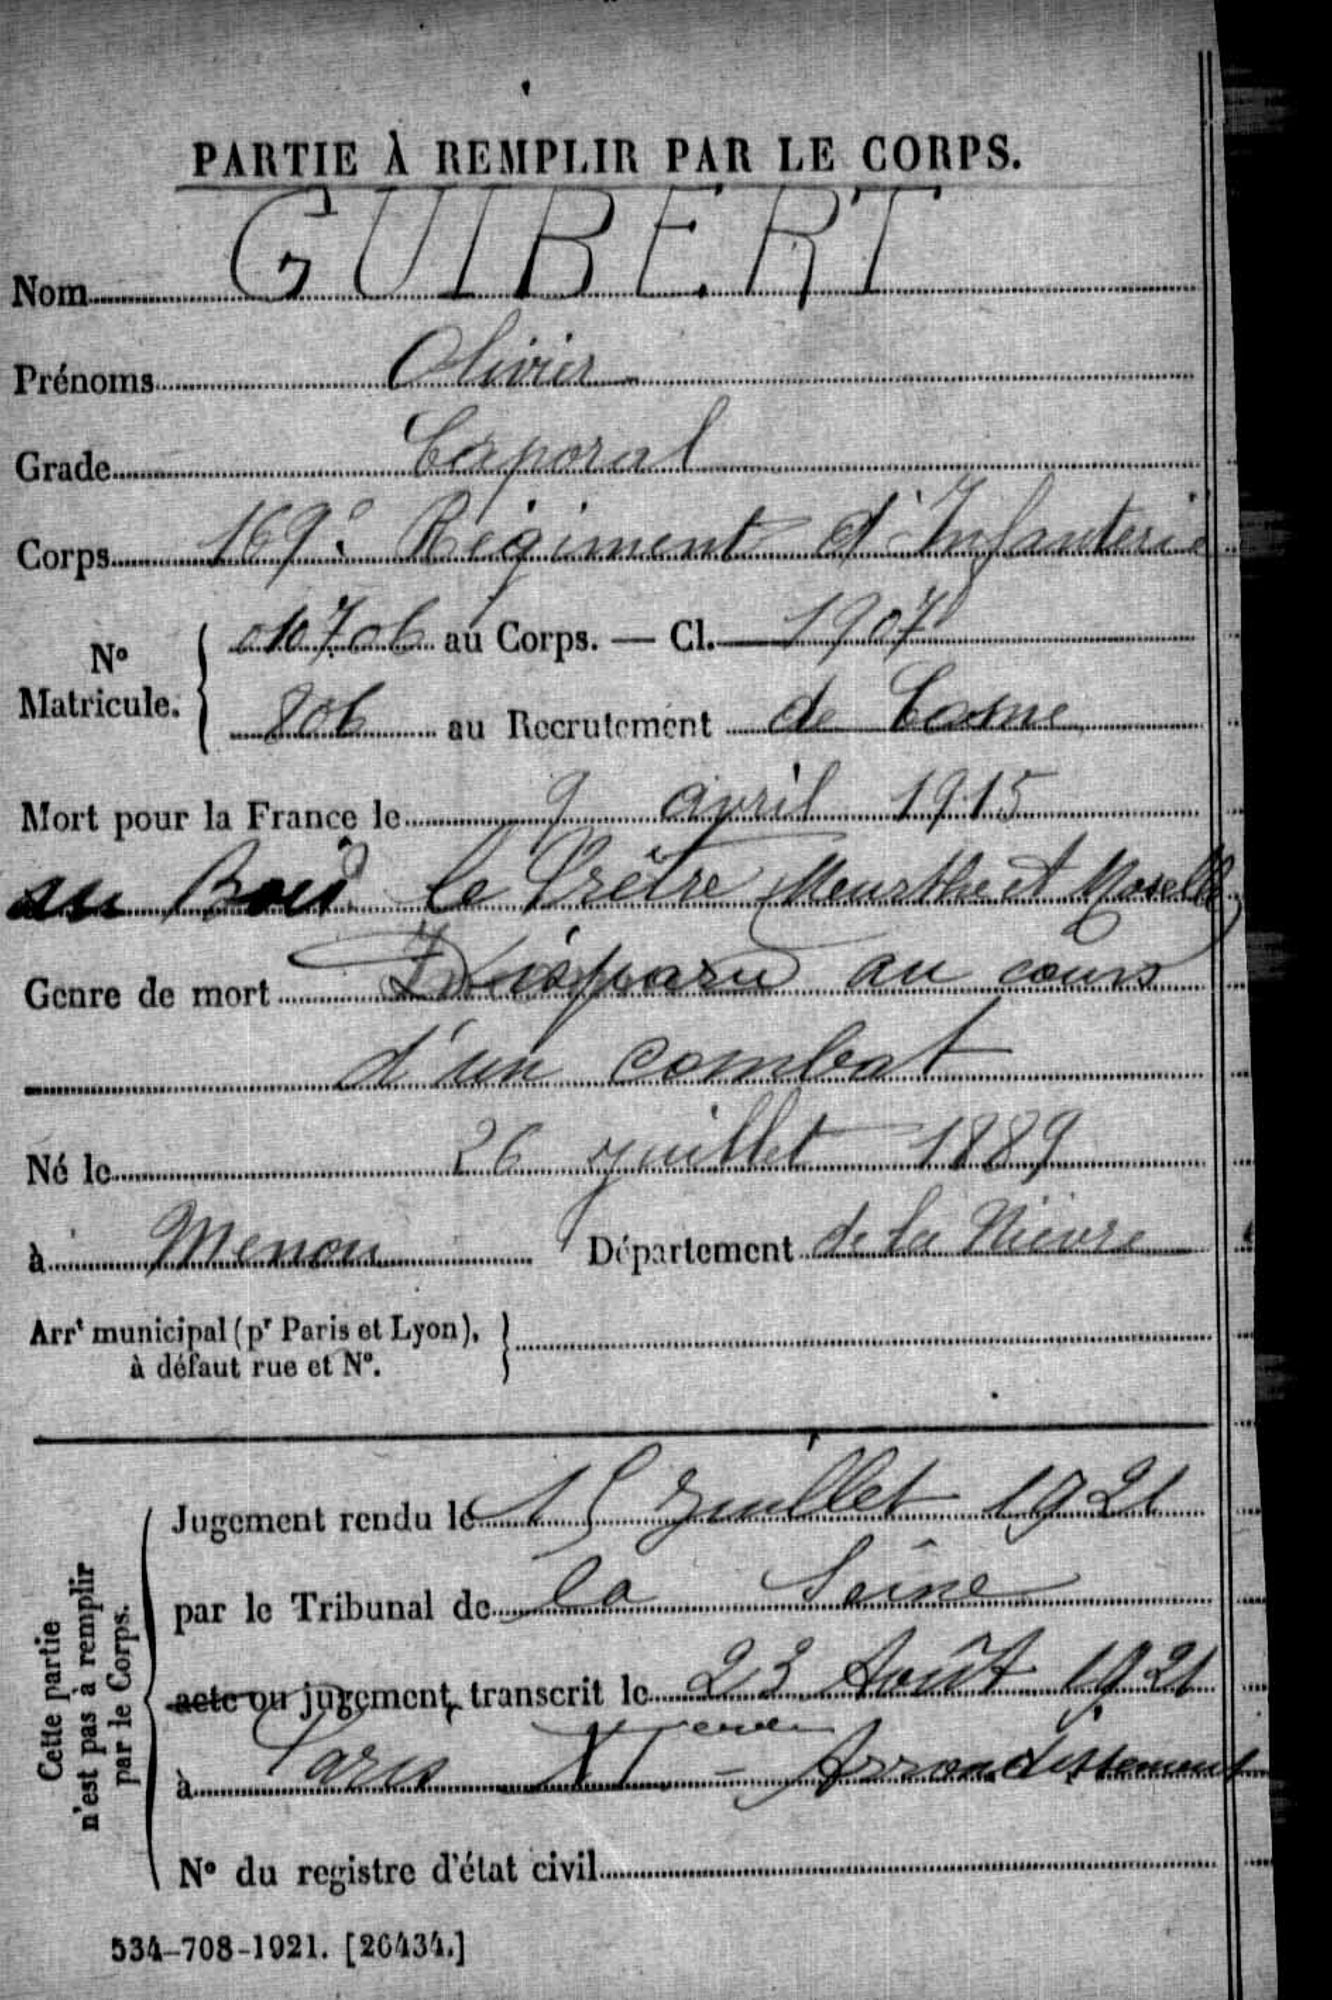 PARTIE À REMPLIR PAR LE CORPS.
Nom GUIBERT
Prénoms Olivier
Grade Caporal
Corps 169e Régiment d'Infanterie
N° Matricule. { 010706 au Corps. — Cl. 1907
806 au Recrutement de Cosne
Mort pour la France le 9 avril 1915
au Bois le Prêtre (Meurthe et Moselle)
Genre de mort Disparu au cours
d'un combat
Né le 26 juillet 1889
à Menou Département de la Nièvre
Arrt municipal (pr Paris et Lyon), }
à défaut rue et N°.
Cette partie
n'est pas à remplir
par le Corps.
Jugement rendu le 15 Juillet 1921
par le Tribunal de la Seine
acte ou jugement transcrit le 23 Août 1921
à Paris XIeme Arrondissement
N° du registre d'état civil
534-708-1921. [26434.]